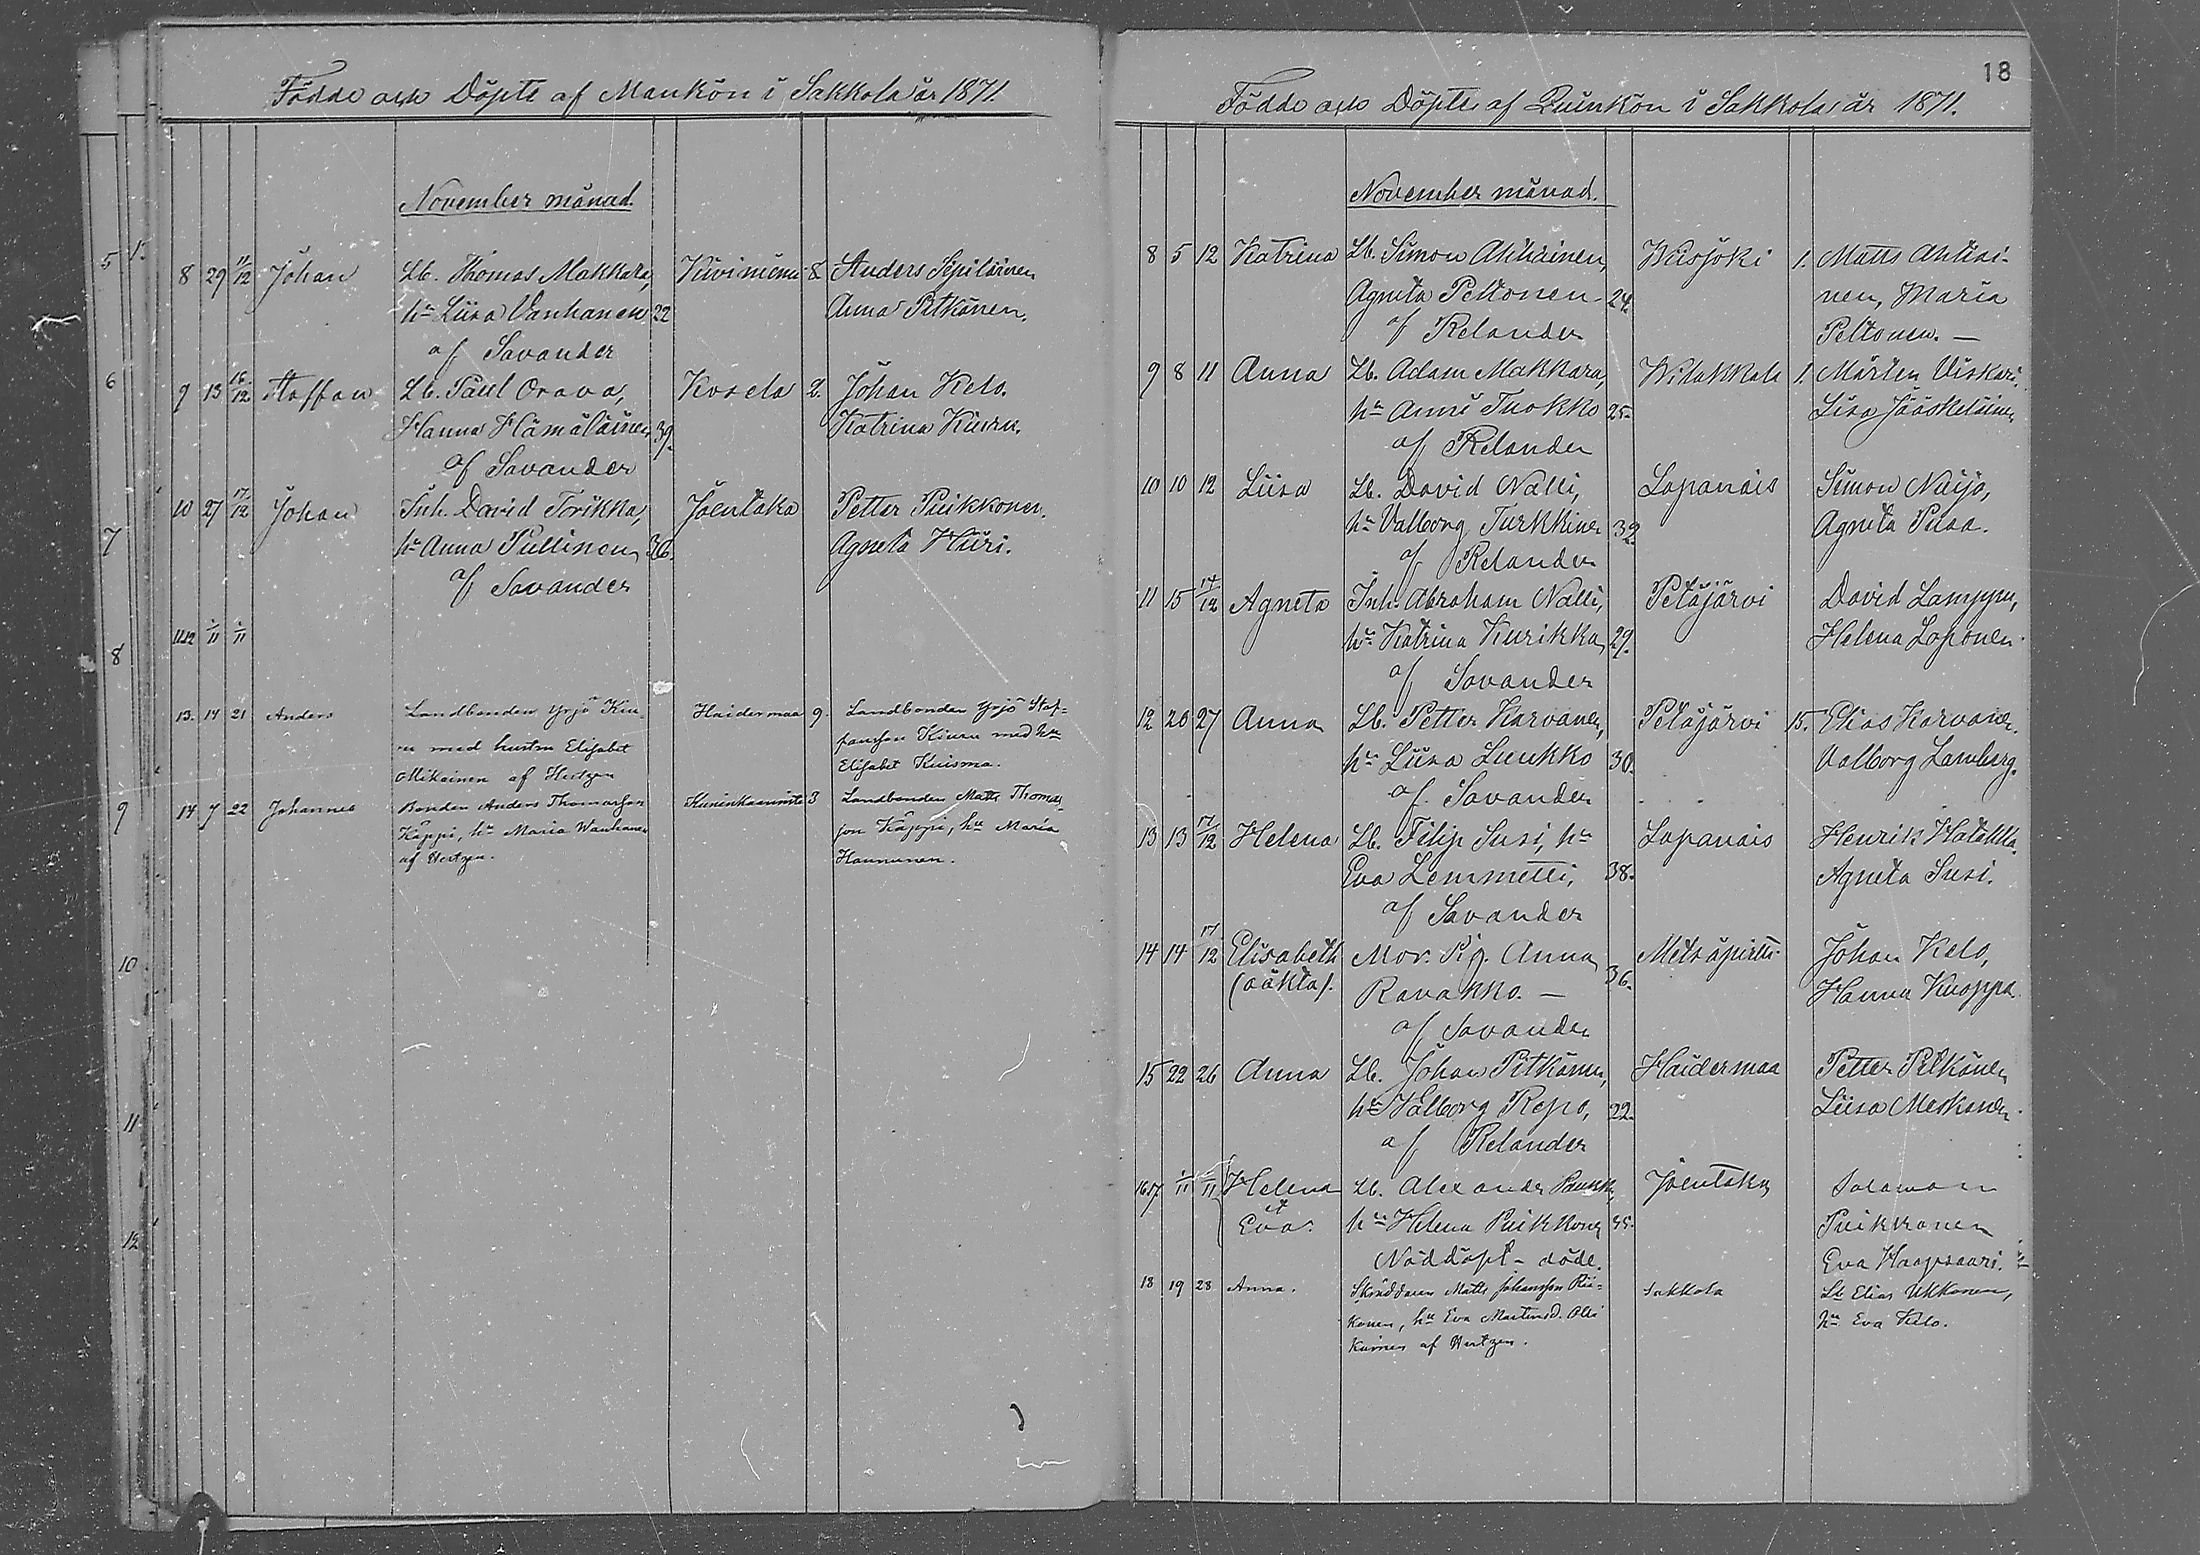 Födde och Döpte af Mankön i Sakkola år 1871.
November månad.
8 29 11/12 Johan Lb. Thomas Makkara, Kiviniemi 8. Anders Sepiläinen
hu Liisa Vanhanen 22 Anna Pitkänen.
af Savander
9 13 16/12 Staffan Lb. Paul Orava, Kosela 2. Johan Kelo.
Hanna Hämäläinen 39. Katrina Kiuru.
af Savander
10 27 17/12 Johan Inh. David Torikka, Joentaka Petter Puikkonen.
hu Anna Pullinen, 36. Agneta Hiiri.
af Savander
11.12 1/11 1/11
13. 14 21 Anders Landbonden Yrjö Kiu- Haidermaa 9. Landbonden Yrjö Staf-
ru med hustru Elisabet fansson Kiuru med hu
Mikainen af Hertzen Elisabet Kuisma.
14 7 22 Johannes Bonden Anders Thomasson 3 Landbonden Matts Thomas-
Käppi, hu Maria Wanhanen son Käppi, hu Maria
af Hertzen. Hannunen.
5
6
7
8
9
10
11
12
18
Födde och Döpte af Quinkön i Sakkola år 1871.
November månad.
8 5 12 Katrina Lb. Simon Ahtiainen, Wiisjoki 1. Matts Ahtiai-
Agneta Peltonen 24. nen, Maria
af Relander Peltonen. —
9 8 11 Anna Lb. Adam Makkara, Wilakkala 1. Mårten Viskari,
hu Anni Tuokko 25. Lisa Jääskeläinen
af Relander
10 10 12 Liisa Lb. David Nalli, Lapanais Simon Naijo,
hu Valborg Turkkinen 32. Agneta Pusa.
af Relander
11 15 14/12 Agneta Inh. Abraham Nalli, Petäjärvi David Lamppu,
hu Katrina Kurikka, 29. Helena Loponen.
af Savander
12 20 27 Anna Lb. Petter Karvanen, Petäjärvi 15. Elias Karvanen.
hu Liisa Luukko 30. Valborg Lamberg.
af Savander
13 13 17/12 Helena Lb. Filip Susi, hu Lapanais Henrik Hatakka.
Eva Lemmetti, 38. Agneta Susi.
af Savander
14 14 17/12 Elisabeth Mor. Pig. Anna Metsäpirtti Johan Kelo,
(oäkta). Ravakko. — 36. Hanna Kuoppa
af Savander
15 22 26 Anna Lb. Johan Pitkänen, Haidermaa Petter Pitkänen
hu Valborg Repo, 22. Liisa Meskanen.
af Relander
16 17 1/11 1/11 Helena Lb. Alexander Joentaka Salamon
et
Eva. hu Helena Puikkonen 45. Puikkonen
Nöddöpt - döde. Eva Haapsaari.
18 19 28 Anna. Skräddaren Matts Johansson Pii- Sakkola Lb Elias Ukkonen,
konen, hu Eva Martinsd. Oli hu Eva Kelo.
kainen af Hertzen.